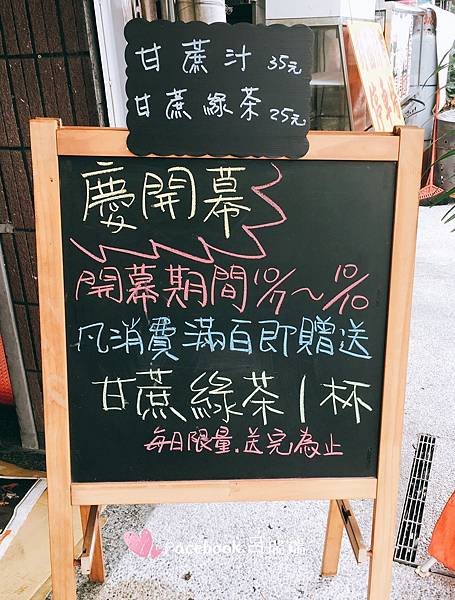 甘蔗汁 35元
甘蔗綠茶 25元
慶開幕
開幕期間10/7~10/10
凡消費滿百即贈送
甘蔗綠茶1杯
每日限量.送完為止
Facebook